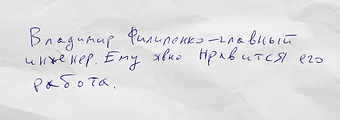 Владимир Филипенко-главный
инженер. Ему явно нравится его
работа.